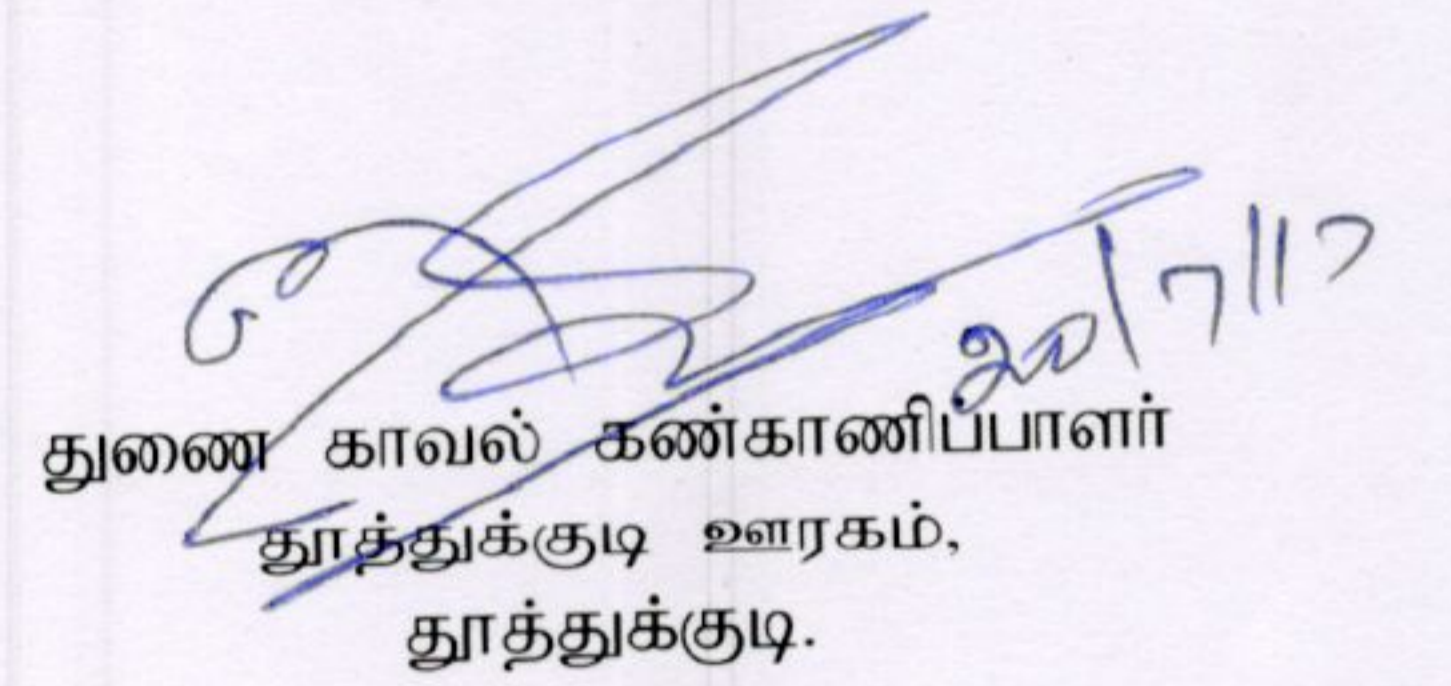 20/7/17
துணை காவல் கண்காணிப்பாளர்
தூத்துக்குடி ஊரகம்,
தூத்துக்குடி.